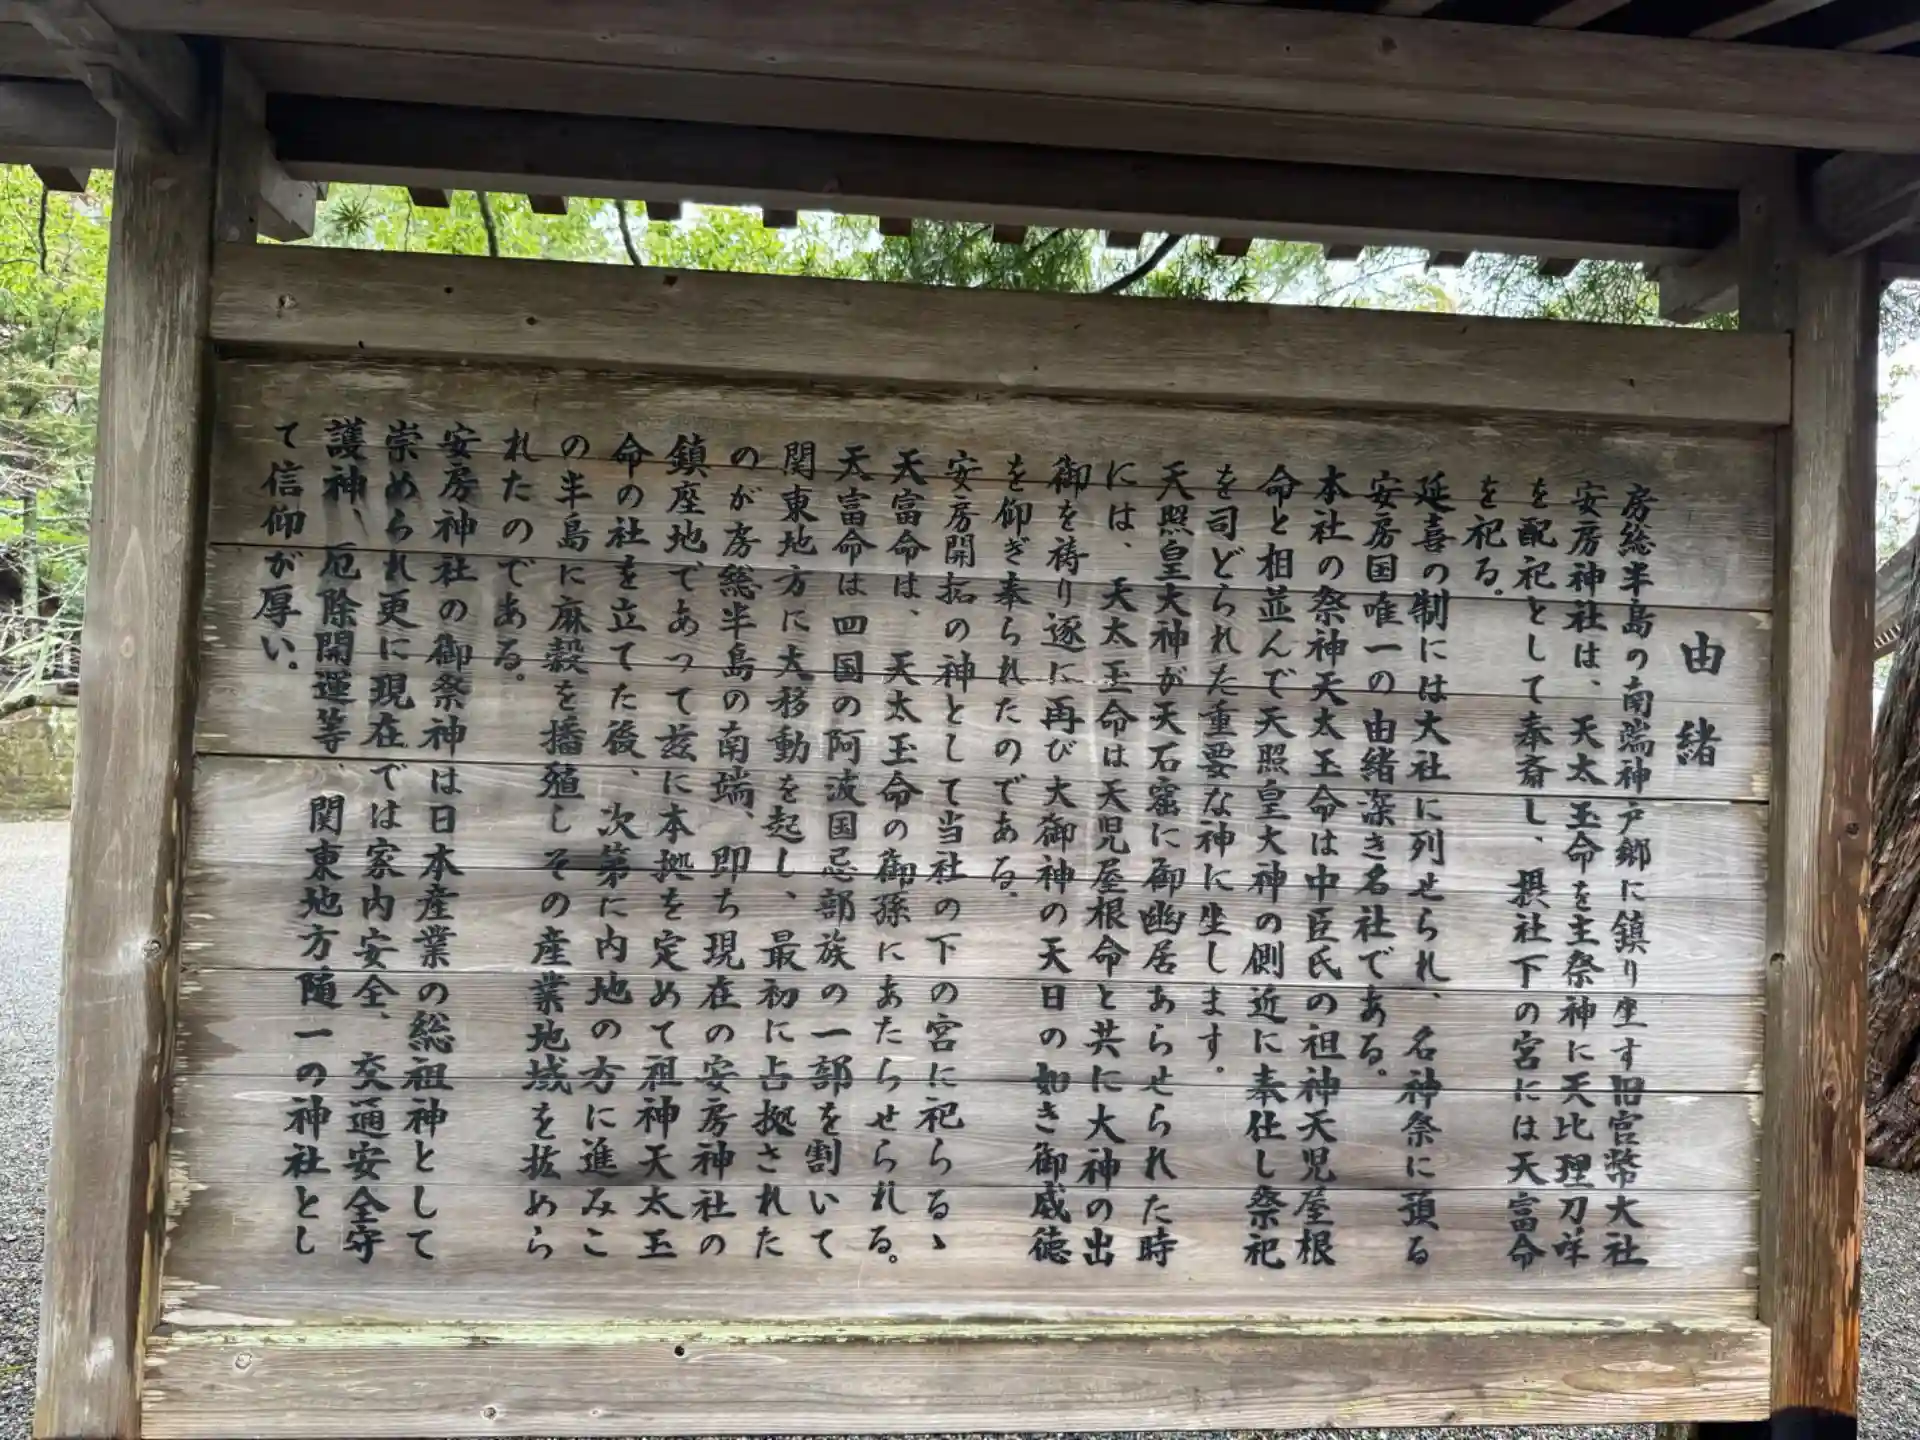 由緒
房総半島の南端神戸郷に鎮り坐す旧官幣大社
安房神社は、天太玉命を主祭神に天比理刀咩
を配祀として奉斎し、摂社下の宮には天富命
を祀る。
延喜の制には大社に列せられ、名神祭に預る
安房国唯一の由緒深き名社である。
本社の祭神天太玉命は中臣氏の祖神天児屋根
命と相並んで天照皇大神の側近に奉仕し祭祀
を司どられた重要な神に坐します。
天照皇大神が天石窟に御幽居あらせられた時
には、天太玉命は天児屋根命と共に大神の出
御を祷り逐に再び大御神の天日の如き御威徳
を仰ぎ奉られたのである、
安房開拓の神として当社の下の宮に祀らるゝ
天富命は、天太玉命の御孫にあたらせられる。
天富命は四国の阿波国忌部族の一部を割いて
関東地方に大移動を起し、最初に占拠された
のが房総半島の南端、即ち現在の安房神社の
鎮座地であって玆に本拠を定めて祖神天太玉
命の社を立てた後、次第に内地の方に進みこ
の半島に麻穀を播殖しその産業地域を拡めら
れたのである。
安房神社の御祭神は日本産業の総祖神として
崇められ更に現在では家内安全、交通安全守
護神、厄除開運等、関東地方随一の神社とし
て信仰が厚い。